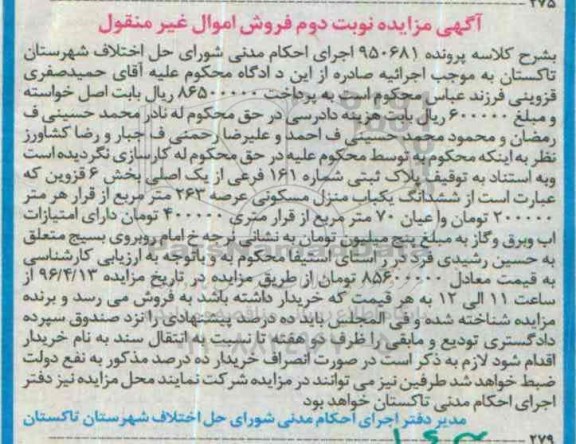 ۲۷۵
آگهی مزایده نوبت دوم فروش اموال غیر منقول
بشرح کلاسه پرونده ۹۵۰۶۸۱ اجرای احکام مدنی شورای حل اختلاف شهرستان
تاکستان به موجب اجرائیه صادره از این د ادگاه محکوم علیه آقای حمیدصفری
قزوینی فرزند عباس محکوم است به پرداخت ۸۶۵۰۰۰۰۰۰ ریال بابت اصل خواسته
و مبلغ ۶۰۰۰۰۰ ریال بابت هزینه دادرسی در حق محکوم له نادر محمد حسینی ف
رمضان و محمود محمد حسینی ف احمد و علیرضا رحمتی ف جبار و رضا کشاورز
نظر به اینکه محکوم به توسط محکوم علیه در حق محکوم له کارسازی نگردیده است
وبه استناد به توقیف پلاک ثبتی شماره ۱۶۱ فرعی از یک اصلی بخش ۶ قزوین که
عبارت است از ششدانگ یکباب منزل مسکونی عرصه ۲۶۳ متر مربع از قرار هر متر
۲۰۰۰۰۰ تومان واعیان ۷۰ متر مربع از قرار متری ۴۰۰۰۰۰ تومان دارای امتیازات
اب وبرق وگاز به مبلغ پنج میلیون تومان به نشانی نرجه خ امام روبروی بسیج متعلق
به حسین رشیدی فرد در راستای استیفا محکوم به و باتوجه به ارزیابی کارشناسی
به قیمت معادل ۸۵۶۰۰۰۰۰ تومان از طریق مزایده در تاریخ مزایده ۹۶/۴/۱۳ از
ساعت ۱۱ الی ۱۲ به هر قیمت که خریدار داشته باشد به فروش می رسد و برنده
مزایده شناخته شده و فی المجلس باید ده درصد پیشنهادی را نزد صندوق سپرده
دادگستری تودیع و مابقی را ظرف دو هفته تا نسبت به انتقال سند به نام خریدار
اقدام شود لازم به ذکر است در صورت انصراف خریدار ده درصد مذکور به نفع دولت
ضبط خواهد شد طرفین نیز می توانند در مزایده شرکت نمایند محل مزایده نیز دفتر
اجرای احکام مدنی تاکستان خواهد بود
مدیر دفتر اجرای احکام مدنی شورای حل اختلاف شهرستان تاکستان
۲۷۹